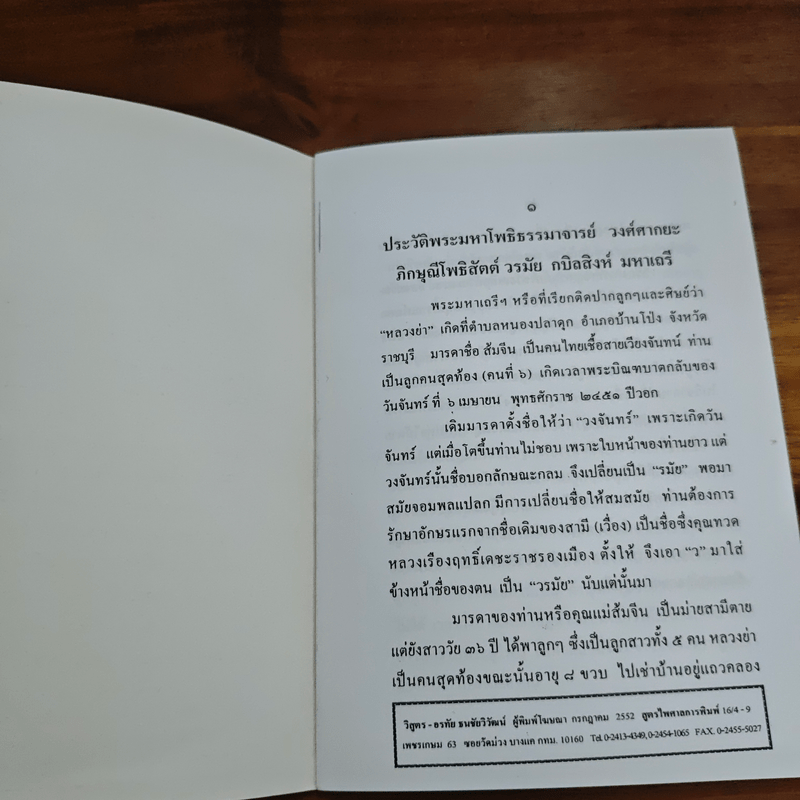 ๑
ประวัติพระมหาโพธิธรรมาจารย์ วงศ์ศากยะ
ภิกษุณีโพธิสัตต์ วรมัย กบิลสิงห์ มหาเถรี
พระมหาเถรีฯ หรือที่เรียกติดปากลูกๆและศิษย์ว่า
"หลวงย่า" เกิดที่ตำบลหนองปลาดุก อำเภอบ้านโป่ง จังหวัด
ราชบุรี มารดาชื่อ ส้มจีน เป็นคนไทยเชื้อสายเวียงจันทน์ ท่าน
เป็นลูกคนสุดท้อง (คนที่ ๖) เกิดเวลาพระบิณฑบาตกลับของ
วันจันทร์ ที่ ๖ เมษายน พุทธศักราช ๒๔๕๑ ปีวอก
เดิมมารดาตั้งชื่อให้ว่า "วงจันทร์" เพราะเกิดวัน
จันทร์ แต่เมื่อโตขึ้นท่านไม่ชอบ เพราะใบหน้าของท่านยาว แต่
วงจันทร์นั้นชื่อบอกลักษณะกลม จึงเปลี่ยนเป็น "รมัย" พอมา
สมัยจอมพลแปลก มีการเปลี่ยนชื่อให้สมสมัย ท่านต้องการ
รักษาอักษรแรกจากชื่อเดิมของสามี (เวื่อง) เป็นชื่อซึ่งคุณทวด
หลวงเรืองฤทธิ์เดชะราชรองเมือง ตั้งให้ จึงเอา "ว" มาใส่
ข้างหน้าชื่อของตน เป็น "วรมัย" นับแต่นั้นมา
มารดาของท่านหรือคุณแม่ส้มจีน เป็นม่ายสามีตาย
แต่ยังสาววัย ๓๖ ปี ได้พาลูกๆ ซึ่งเป็นลูกสาวทั้ง ๕ คน หลวงย่า
เป็นคนสุดท้องขณะนั้นอายุ ๘ ขวบ ไปเช่าบ้านอยู่แถวคลอง
วิสูตร - อรทัย ธนชัยวิวัฒน์ ผู้พิมพ์โฆษณา กรกฎาคม 2552 สูตรไพศาลการพิมพ์ 16/4 - 9
เพชรเกษม 63 ซอยวัดม่วง บางแค กทม. 10160 Tel. 0-2413-4349, 0-2454-1065 FAX. 0-2455-5027